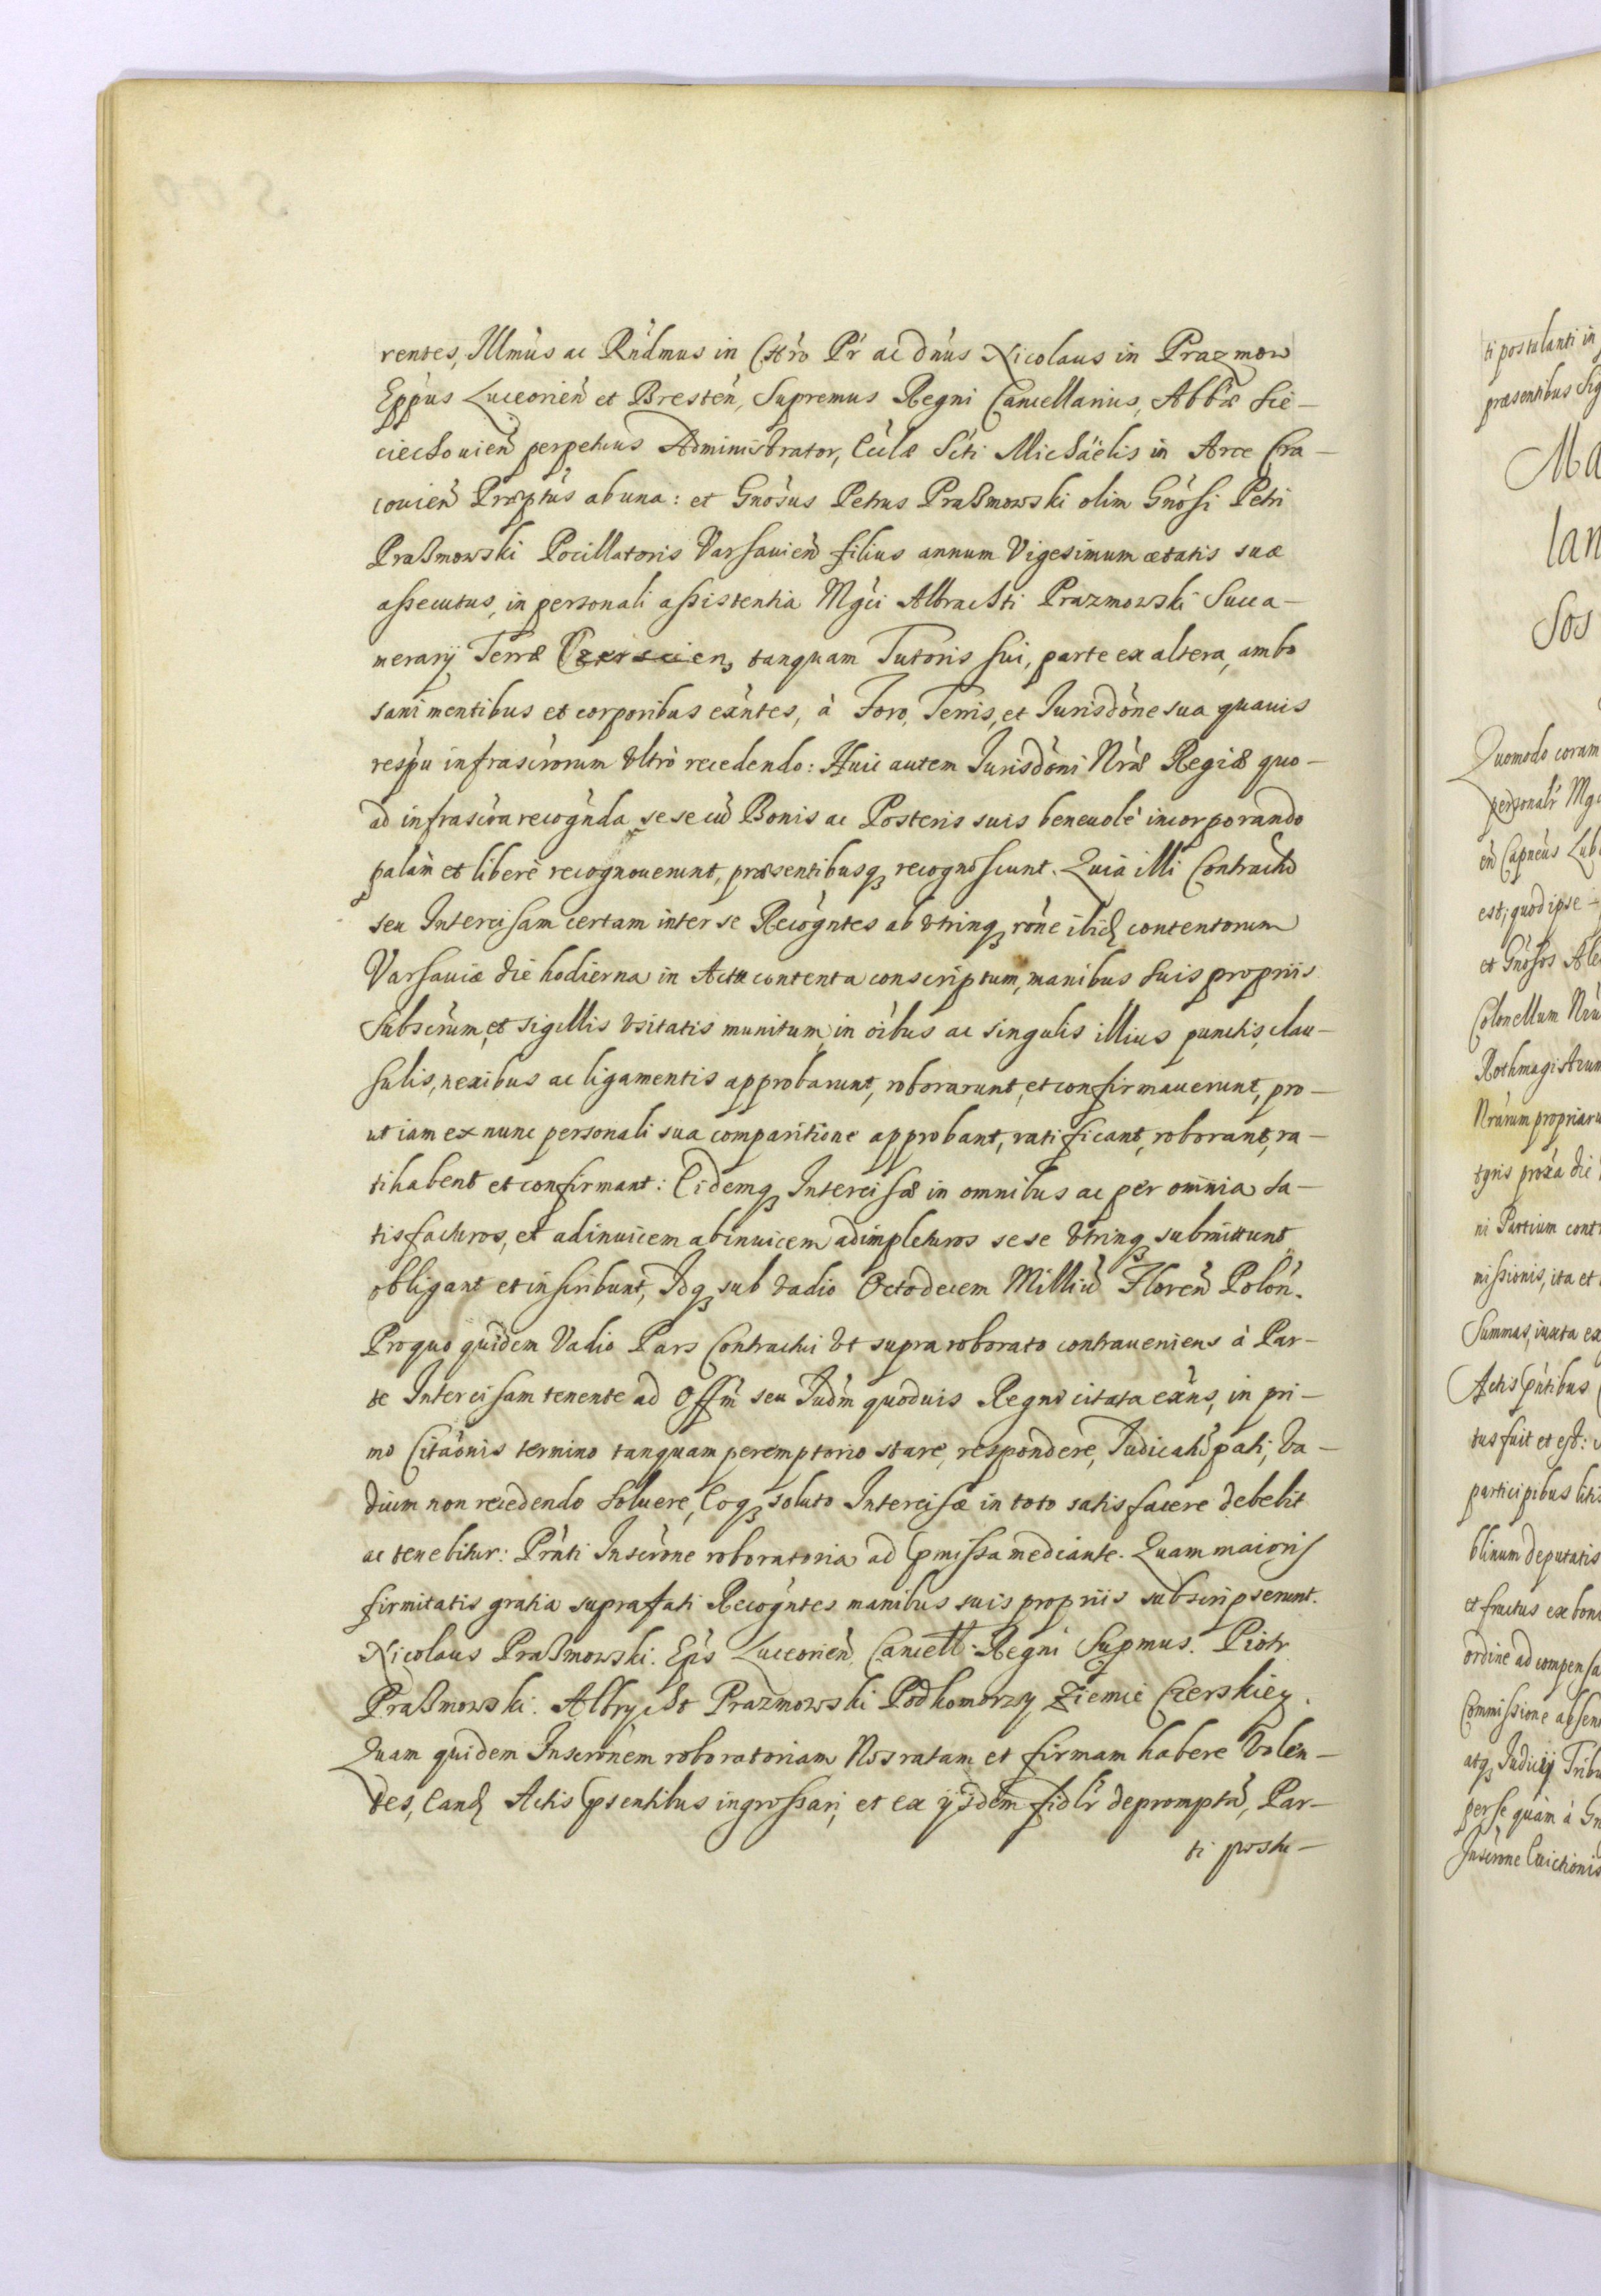 rentes, Illmus ac Rndmus in Chro Pr ac dnus Nicolaus in Prazmow
Eppus Luceorien et Bresten, Supremus Regni Cancellarius, Abbiæ Sie-
ciechouien perpetuus Administrator, Cclæ Scti Michäelis in Arce Cra-
couien Præptus ab una: et Gnosus Petrus Praßmowski olim Gnosi Petri
Praßmowski Pocillatoris Varsauien filius annum Vigesimum ætatis suæ
assecutus, in personali assistentia Mgci Albrachti Prazmowski Succa-
merarij Terræ Czerscien, tanquam Tutoris sui, parte ex altera, ambo
sani mentibus et corporibus exntes, à Foro, Terris, et Jurisdone sua quauis
respu infrascrorum vltrò recedendo: Huic autem Jurisdoni Nræ Regiæ quo-
ad infrascra recognda sese cu Bonis ac Posteris suis beneuolè incorporando
palam et liberè recognouerunt, præsentibusq recognoscunt. Quia illi Contractu
seu Intercisam certam inter se Recogntes ab vtrinq rone ibid contentorum
Varsauiæ die hodierna in Actu contenta conscriptum, manibus suis propriis
subscrum, et sigillis vsitatis munitum, in oibus ac singulis illius punctis, clau-
sulis, nexibus ac ligamentis approbarunt, roborarunt, et confirmauerunt, pro-
ut iam ex nunc personali sua comparitione approbant, ratificant, roborant, ra-
tihabent et confirmant: Eidemq Intercisæ in omnibus ac per omnia sa-
tisfacturos, et adinuicem abinuicem adimpleturos sese vtrinq submittunt
obligant et inscribunt, Idq sub vadio Octodecem Milliu Floren Polon.
Pro quo quidem Vadio Pars Contractui vt supra roborato contraueniens à Par-
te Intercisam tenente ad Offm seu Judm quoduis Regni citata exns, in pri-
mo Citaonis termino tanquam peremptorio stare, respondere, Judicatu pati, Va-
dium non recedendo soluere, Eoq soluto Intercisæ in toto satisfacere debebit
ac tenebitur: Prnti Inscrone roboratoria ad pmissa mediante. Quam maioris
firmitatis gratia suprafati Recogntes manibus suis propriis subscripserunt.
Nicolaus Praßmowski. Eps Luceorien, Cancell: Regni Supmus. Piotr
Praßmowski. Albrycht Prazmowski Podkomorzy Ziemie Czerskiey.
Quam quidem Inscronem roboratoriam Nos ratam et firmam habere Volen-
tes, Eand Actis psentibus ingrossari, et ex ijsdem fidlr depromptu, Par-
ti postu-
ti postulanti in
præsentibus Sig
Ma
lan
Sos
Quomodo coram
personalr Mg
en Capneus Lub
est; quod ipse
et Gnosos Ale
Colonellum Nru
Rothmagistrum
Nrarum propriaru
tgris proxa die
ni Partium cont
missionis, ita et
Summas, iuxta ex
Actis pntibus
tus fuit et est:
participibus litis
blinum deputatis
et fructus ex boni
ordine ad compensa
Commissione absen
atq Judicij Tribu
per se quàm à Gn
Inscrone Euictionis